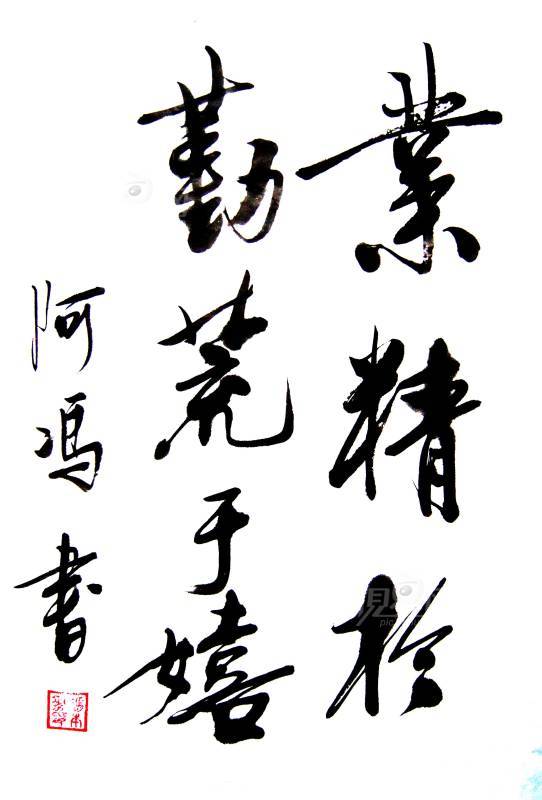 業精於
勤荒于嬉
阿馮書